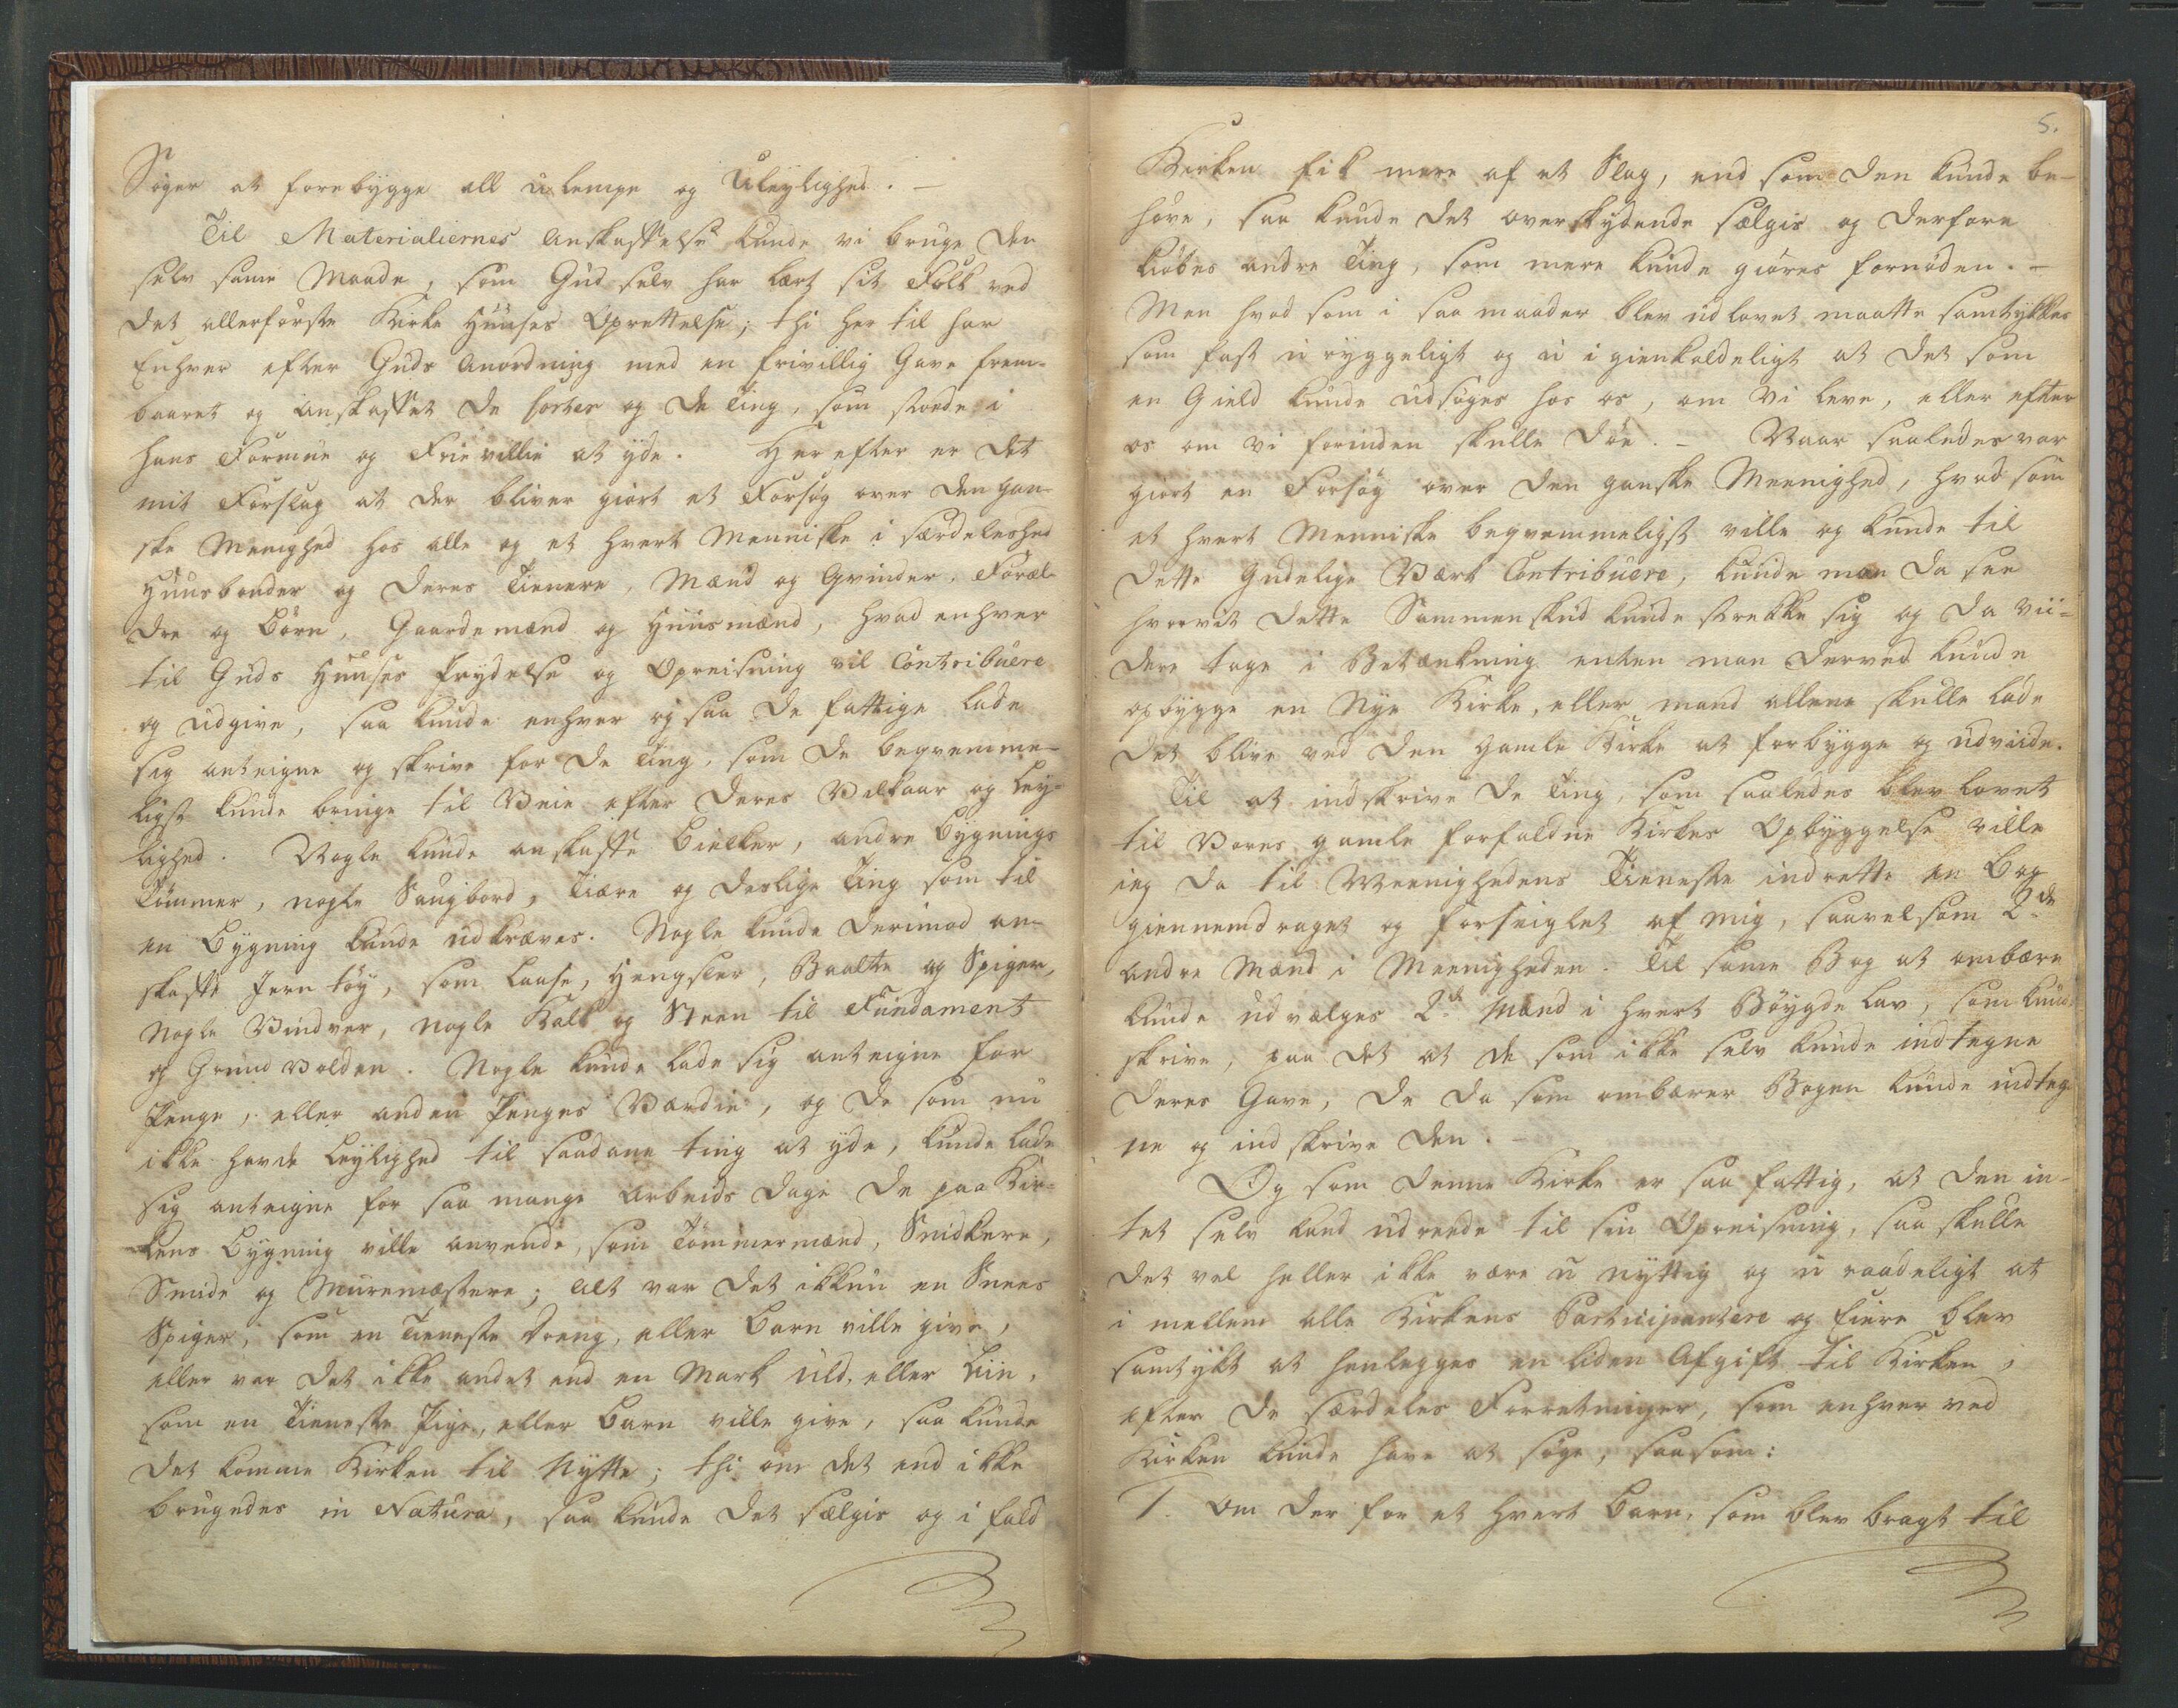 Søger at forebygge all ulempe og Uleylighed. —
Til Materialiernes Anskaffelse kunde vi bruge den
selv same Maade, som Gud selv har lært sit Folk ved
det allerførste Kirke Huuses Oprettelse; thi her til har
Enhver efter Guds Anordning med en frivillig Gave frem-
baaret og anskaffet de sorter og de Ting, som stoede i
hans Formue og Frievillie at yde. Her efter er det
mit Forslag at der bliver giort et Forsøg over den gan-
ske Menighed hos alle og et hvert Menniske i særdeleshed
Huusbonder og deres Tienere, Mænd og Qvinder, Foræl-
dre og Børn, Gaardemænd og Huusmænd, hvad enhver
til Guds Huuses Prydelse og Opreisning vil Contribuere
og udgive, saa kunde enhver og saa de fattige lade
sig anteigne og skrive for de Ting, som de beqvemme-
ligst kunde bringe til Veie efter deres Vilkaar og Ley-
lighed. Nogle kunde anskaffe Bielker, andre Bygnings
Tømmer, nogle Saugbord, Tiære og deslige Ting som til
en Bygning kunde udkræves. Nogle kunde derimod an-
skaffe Jern tøy, som Laase, Hengsler, Baalte og Spiger,
Nogle Vinduer, nogle Kalk og Steen til Fundament
og Grund Volden. Nogle kunde lade sig anteigne for
Penge, eller anden Penges Værdie, og de som nu
ikke havde Leylighed til saadane ting at yde, kunde lade
sig anteigne for saa mange Arbeids Dage de paa Kir-
kens Bygning ville anvende, som Tømmermænd, Snidkere,
Smide og Muremæstere; Alt var det ikkun en Snees
Spiger, som en Tieneste Dreng, eller Barn ville give,
eller var det ikke andet end en Mark Uld, eller Liin,
som en Tieneste Pige, eller Barn ville give, saa kunde
det komme Kirken til Nytte; thi om det end ikke
brugedes in Natura, saa kunde det sælgis og i fald
5.
Kirken fik mere af et Slag, end som den kunde be-
høve, saa kunde det overskydende sælgis og derfore
kiøbes andre Ting, som mere kunde giøres fornøden. —
Men hvad som i saa maader blev udlovet maatte samtykkes
som fast u ryggeligt og u igienkaldeligt at det som
en Gield kunde udsøges hos os, om Vi leve, eller efter
os om vi forinden skulle døe. — Naar saaledes var
giort en Forsøg over den ganske Meenighed, hvad som
et hvert Menniske beqvemmeligst ville og kunde til
dette Gudelige Værk Contribuere, kunde man da see
hvorvit dette Sammenskud kunde strekke sig og da vii-
dere tage i Betænkning enten man derved kunde
opbygge en Nye Kirke, eller mand allene skulle lade
det blive ved den gamle Kirke at forbygge og udviide.
Til at indskrive de Ting, som saaledes blev lovet
til Vores gamle forfaldne Kirkes Opbyggelse ville
jeg da til Meenighedens Tieneste indrette en Bog
giennemdraget og forseiglet af mig, saavelsom 2de
andre Mænd i Meenigheden. Til same Bog at ombære
kunde udvælges 2de Mænd i hvert Bøygde lav, som kunde
skrive, paa det at de som ikke selv kunde indtegne
deres Gave, de da som ombærer Bogen kunde indteg-
ne og indskrive den. —
Og som denne Kirke er saa fattig, at den in-
tet selv kand udreede til sin Opreisning, saa skulle
det vel heller ikke være u nyttig og u raadeligt at
i mellem alle Kirkens Participantere og Eiere blev
samtykt at henlegges en liden Afgift til Kirken,
efter de særdeles Forretninger, som enhver ved
Kirken kunde have at søge, saasom:
1. Om der for et hvert Barn, som blev bragt til